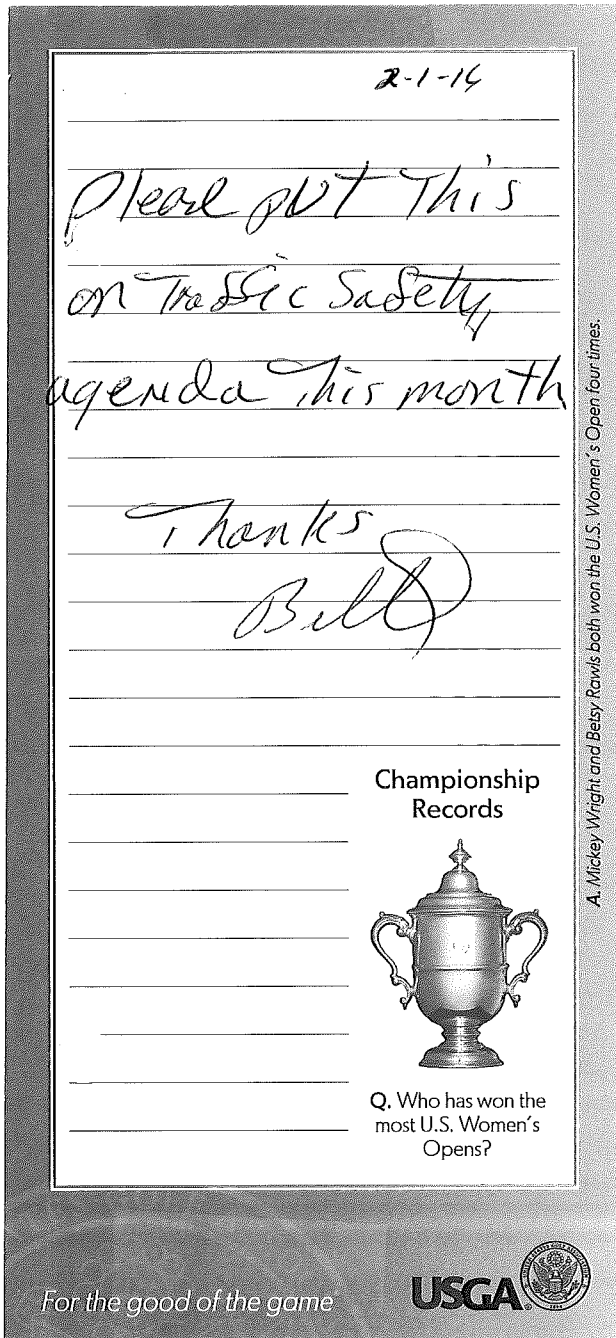 2-1-16
Please put This
on Traffic Safety
agenda This month
Thanks
Bill
Championship
Records
Q. Who has won the
most U.S. Women's
Opens?
A. Mickey Wright and Betsy Rawls both won the U.S. Women's Open four times.
For the good of the game
USGA